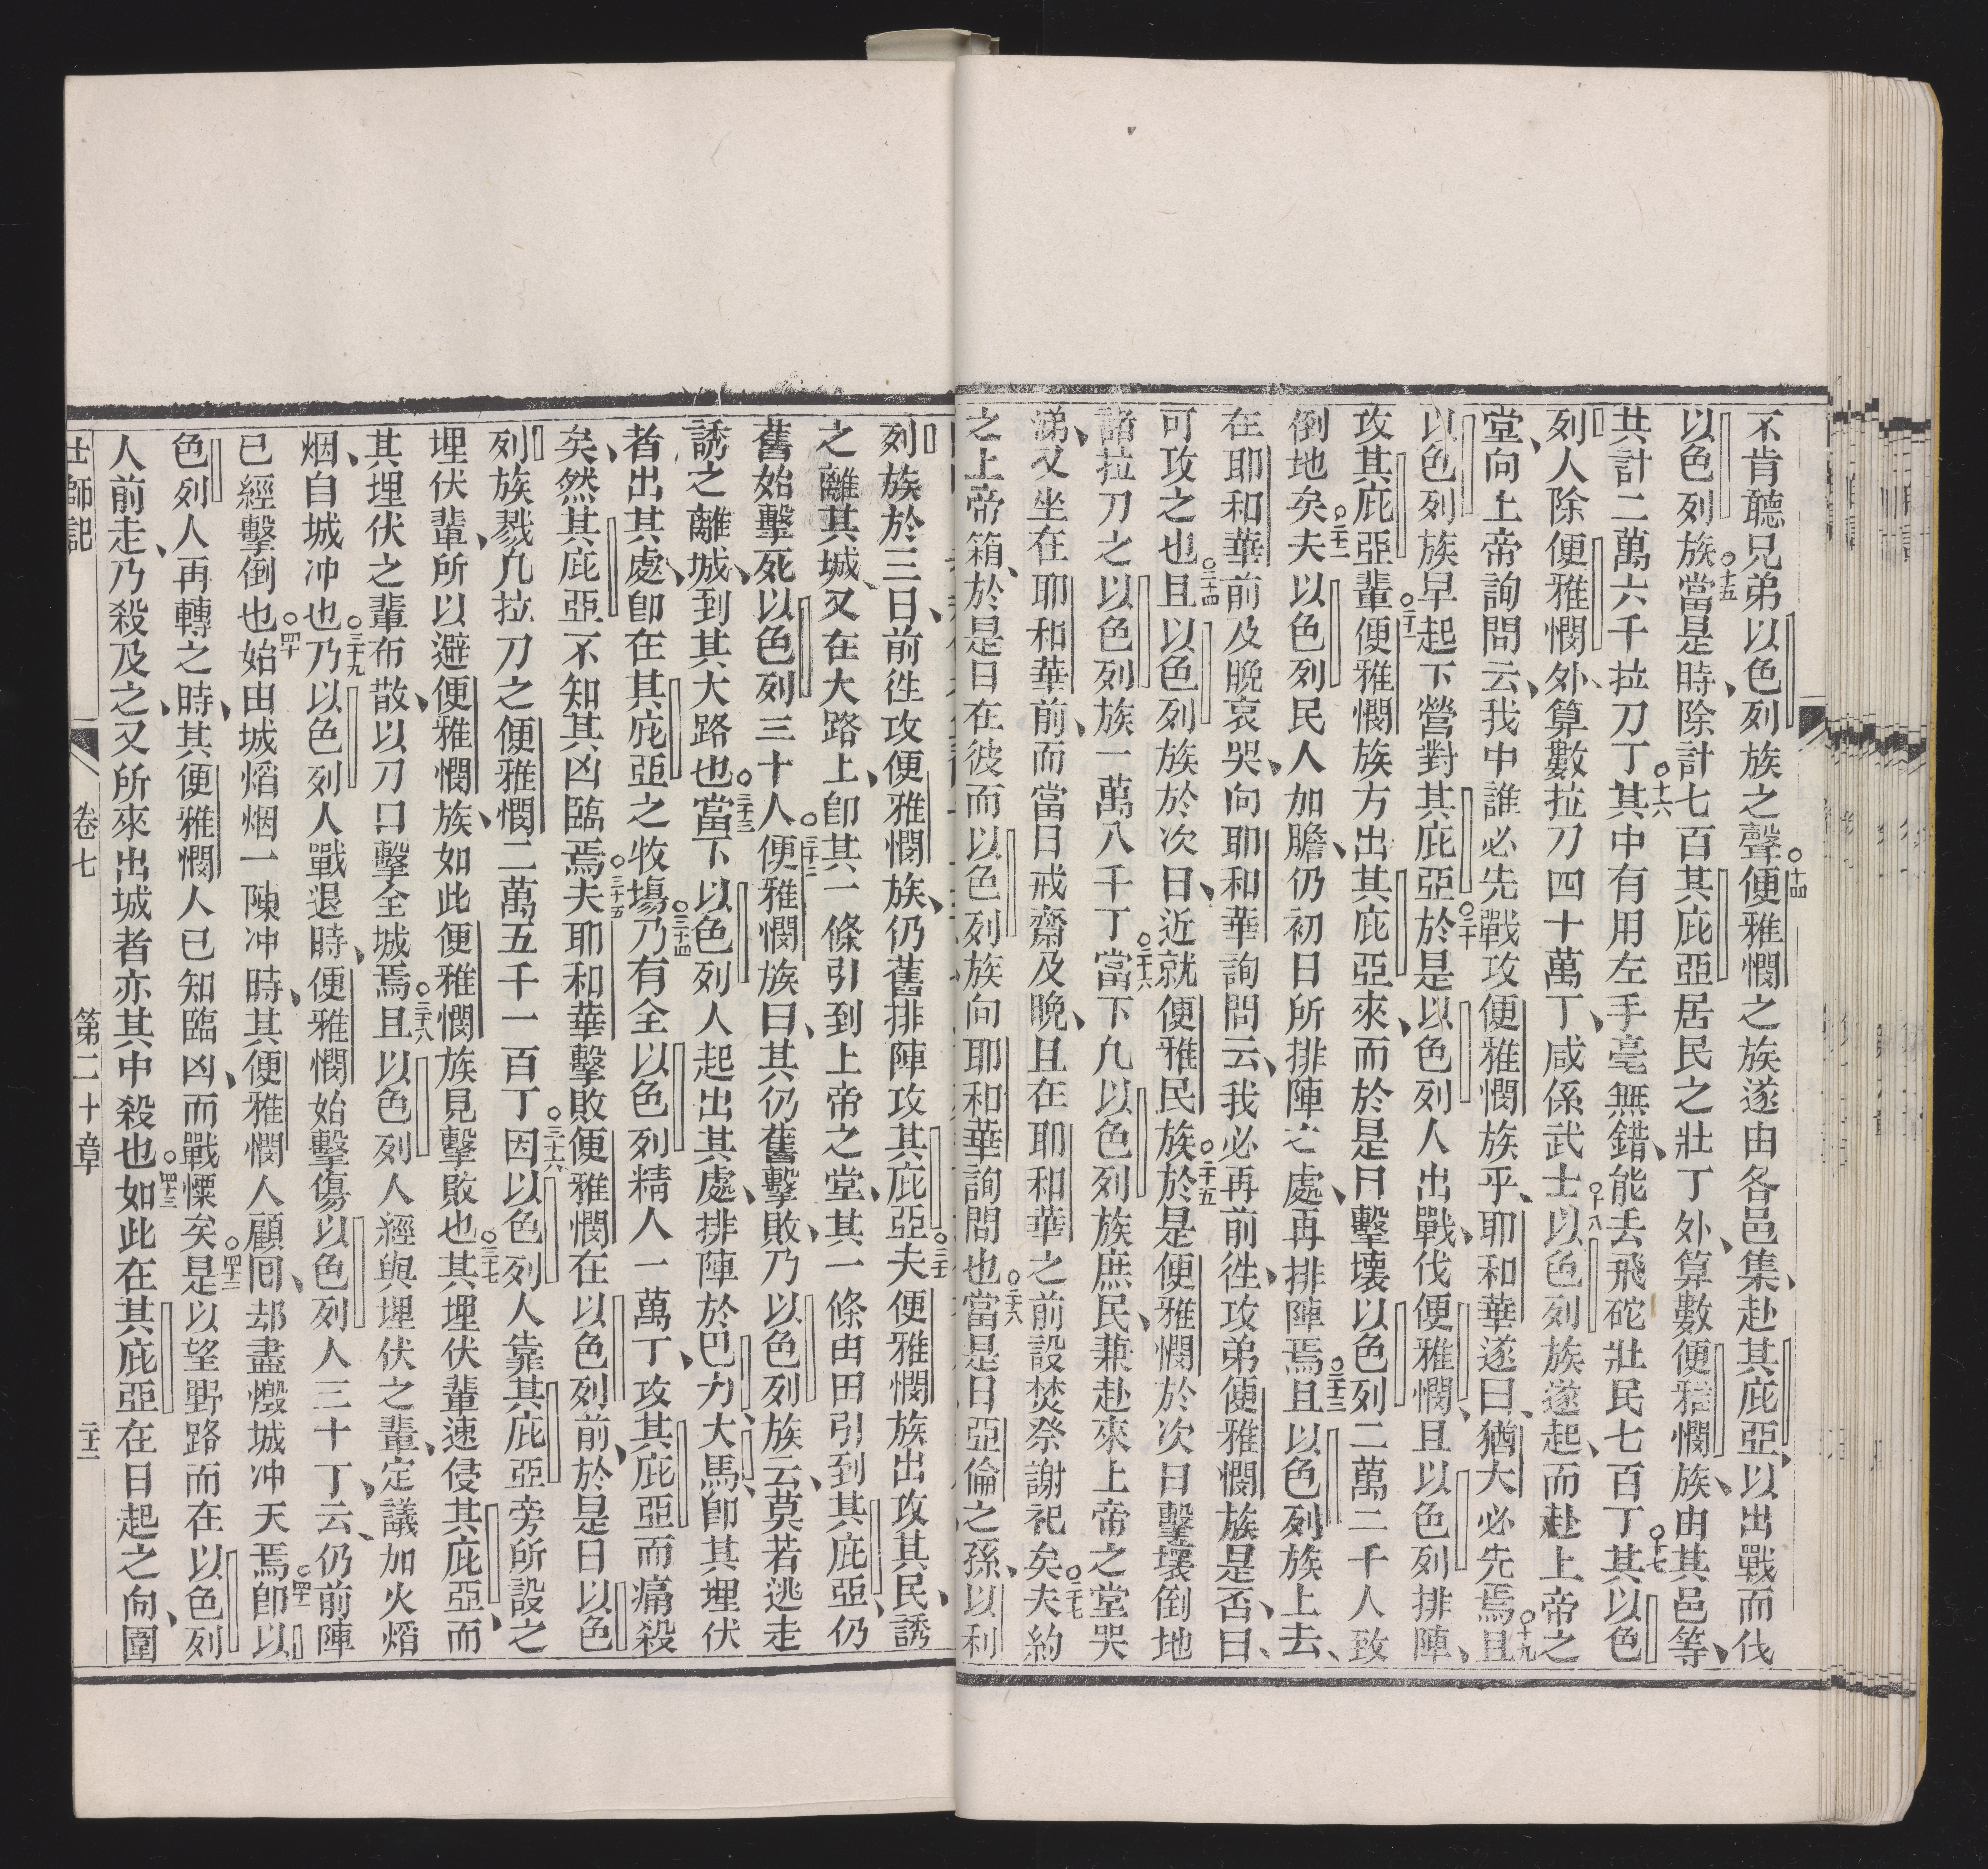 不肯聽兄弟以色列族之聲○十四便雅憫之族遂由各邑集、赴其庇亞、以出戰而伐
以色列族○十五當是時、除計七百其庇亞居民之壯丁外、算數便雅憫族、由其邑等、
共計二萬六千拉刀丁○十六其中有用左手毫無錯、能丟飛砣壯民七百丁○十七其以色
列人除便雅憫外、算數拉刀四十萬丁、咸係武士○十八以色列族遂起、而赴上帝之
堂、向上帝詢問云、我中誰必先戰攻便雅憫族乎、耶和華遂曰、猶大必先焉○十九且
以色列族早起下營對其庇亞○二十於是以色列人出戰、伐便雅憫、且以色列排陣、
攻其庇亞輩○二十一便雅憫族方出其庇亞來、而於是日擊壞以色列二萬二千人致
倒地矣○二十二夫以色列民人加膽、仍初日所排陣之處、再排陣焉○二十三且以色列族上去、
在耶和華前及晚哀哭、向耶和華詢問云、我必再前徃、攻弟便雅憫族是否、曰、
可攻之也○二十四且以色列族於次日、近就便雅民族○二十五於是便雅憫於次日擊壞倒地
諸拉刀之以色列族一萬八千丁○二十六當下凢以色列族庶民、兼赴來上帝之堂哭
涕、又坐在耶和華前、而當日戒齋及晚、且在耶和華之前設焚祭謝祀矣○二十七夫約
之上帝箱、於是日在彼而以色列族向耶和華詢問也○二十八當是日亞倫之孫、以利
列族於三日、前徃攻便雅憫族、仍舊排陣攻其庇亞○三十一夫便雅憫族出攻其民、誘
之離其城、又在大路上、卽其一條引到上帝之堂、其一條由田引到其庇亞、仍
舊始擊死以色列三十人○三十二便雅憫族曰、其仍舊擊敗、乃以色列族云、莫若逃走
誘之離城、到其大路也○三十三當下以色列人起出其處、排陣於巴力大馬、卽其埋伏
者出其處、卽在其庇亞之牧塲○三十四乃有全以色列精人一萬丁、攻其庇亞而痛殺
矣、然其庇亞不知其凶臨焉○三十五夫耶和華擊敗便雅憫在以色列前、於是日以色
列族戮凢拉刀之便雅憫二萬五千一百丁○三十六因以色列人靠其庇亞旁所設之
埋伏輩、所以避便雅憫族、如此便雅憫族見擊敗也○三十七其埋伏輩速侵其庇亞、而
其埋伏之輩布散、以刀口擊全城焉○三十八且以色列人經與埋伏之輩、定議加火熖
烟、自城冲也○三十九乃以色列人戰退時、便雅憫始擊傷以色列人三十丁、云、仍前陣
已經擊倒也○四十始由城熖烟一陳冲時、其便雅憫人顧囘、却盡燬城冲天焉○四十一卽以
色列人再轉之時、其便雅憫人已知臨凶、而戰慄矣○四十二是以望野路而在以色列
人前走、乃殺及之、又所來出城者亦其中殺也○四十三如此在其庇亞在日起之向、圍
士師記 卷七 第二十章 二十二